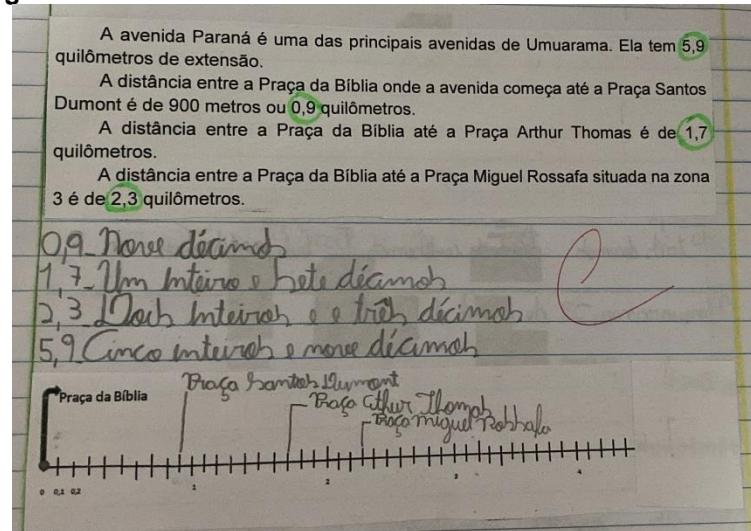 A avenida Paraná é uma das principais avenidas de Umuarama. Ela tem 5,9
quilômetros de extensão.
A distância entre a Praça da Bíblia onde a avenida começa até a Praça Santos
Dumont é de 900 metros ou 0,9 quilômetros.
A distância entre a Praça da Bíblia até a Praça Arthur Thomas é de 1,7
quilômetros.
A distância entre a Praça da Bíblia até a Praça Miguel Rossafa situada na zona
3 é de 2,3 quilômetros.
0,9 - Nove décimos
1,7 - Um Inteiro e sete décimos
2,3 Dois Inteiros e e três décimos
5,9 Cinco inteiros e nove décimos
C
Praça Santos Dumont
Praça da Bíblia
Praça Athur Thomas
Praça Miguel Rossafa
0 0,1 0,2 1 2 3 4